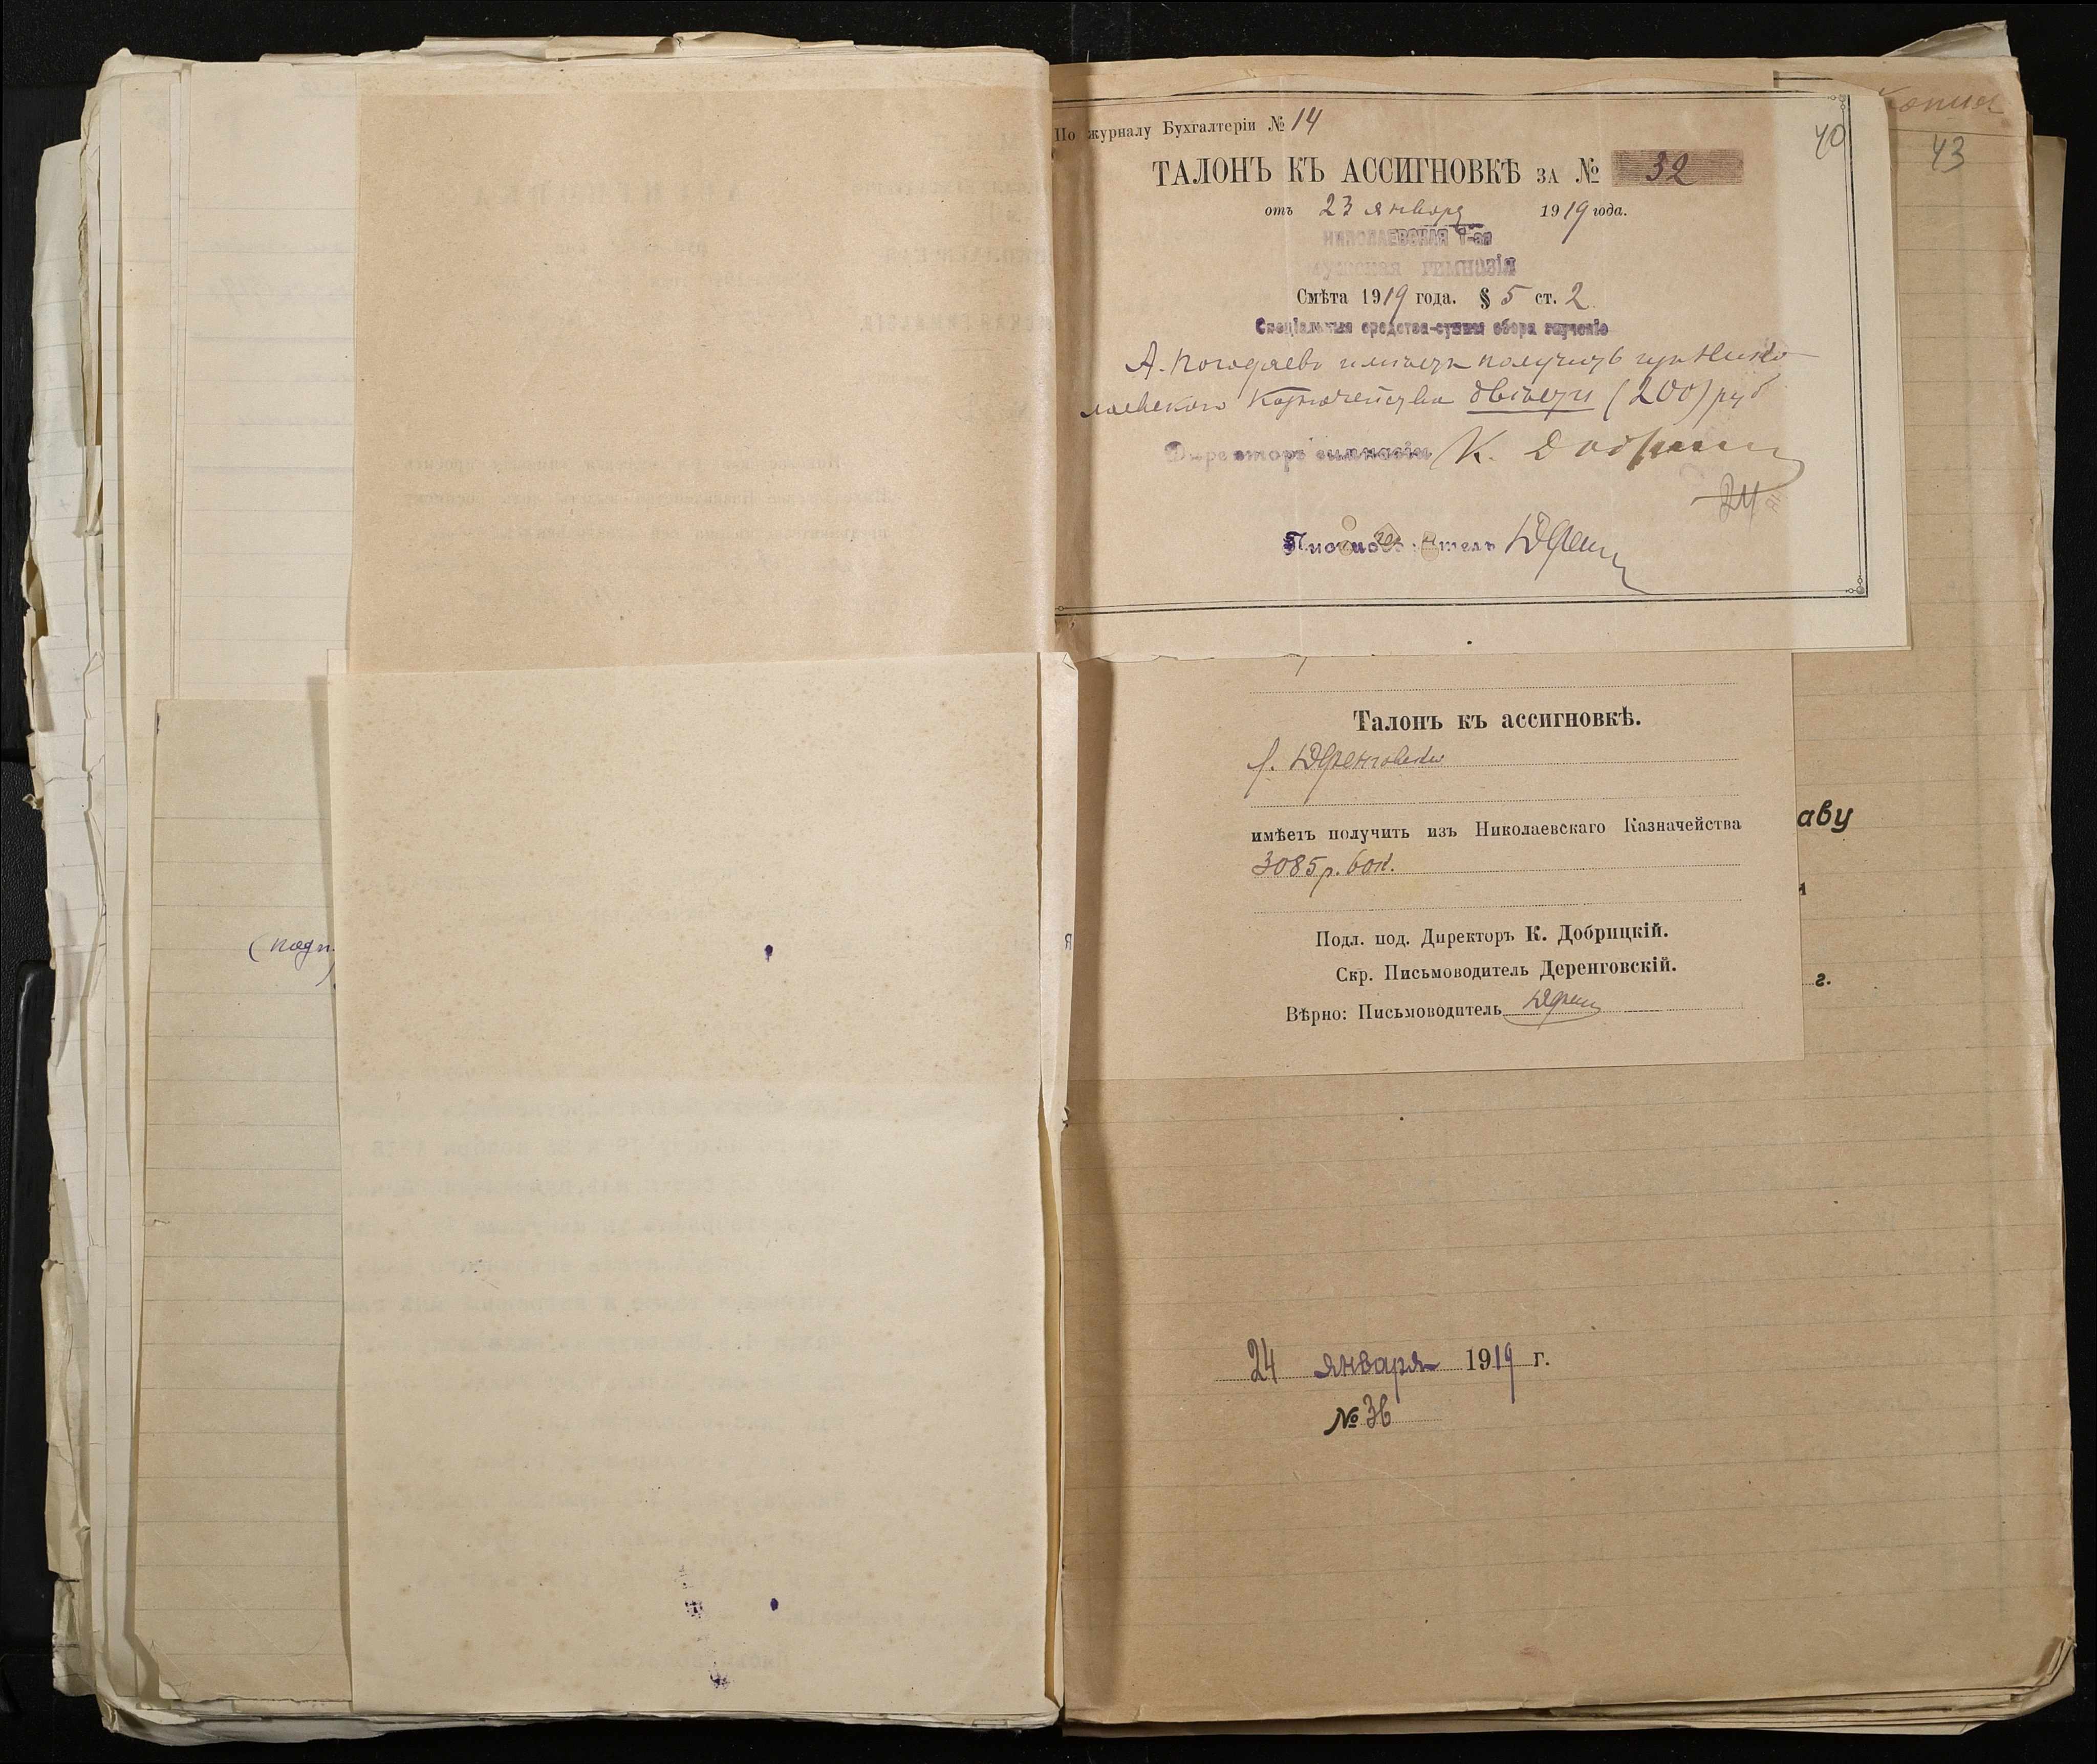 Копия
40
43
По журналу Бухгалтеріи № 14
ТАЛОНЪ КЪ АССИГНОВКѢ ЗА № 32
отъ 23 января 1919 года.
НИКОЛАЕВСКАЯ 1-ая
МУЖСКАЯ ГИМНАЗІЯ
Смѣта 1919 года. § 5 ст. 2
Спеціальныя средства-суммы сбора за ученіе
А. Погодаевъ имѣетъ получить изъ Нико-
лаевскаго Казначейства двѣсти (200) руб
Директоръ гимназіи К. Добрицкій
24
Письмоводитель
Талонъ къ ассигновкѣ.
имѣетъ получить изъ Николаевскаго Казначейства
3085 р. 60 к.
Подл. под. Директоръ К. Добрицкій.
Скр. Письмоводитель Деренговскій.
Вѣрно: Письмоводитель
аву
г.
(подп.
24 января 1919 г.
№ 36